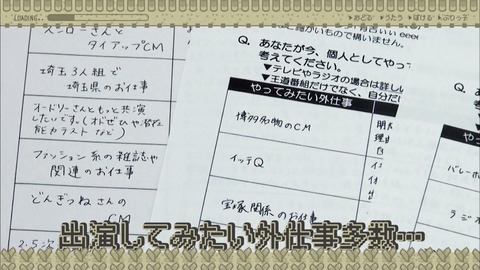 LOADING...
おどる
うたう
ぼける
ぶりっ子
スシローさんと
タイアップCM
埼玉3人組で
埼玉県のお仕事
オードリーさんともっと共演
したいです。(オドぜひや潜在
能力テストなど)
ファッション系の雑誌や
関連のお仕事
どんぎつねさんの
CM
2.5次
Q. あなたが今、個人としてやっ
考えてください。
▼テレビやラジオの場合は詳し
▼王道番組だけでなく、自分だ
やってみたい外仕事
博多名物のCM
イッテQ
宝塚関係のお仕事
Q. あ
考え
▼テ
▼王
バレーボ
ラジオ
出演してみたい外仕事多数…